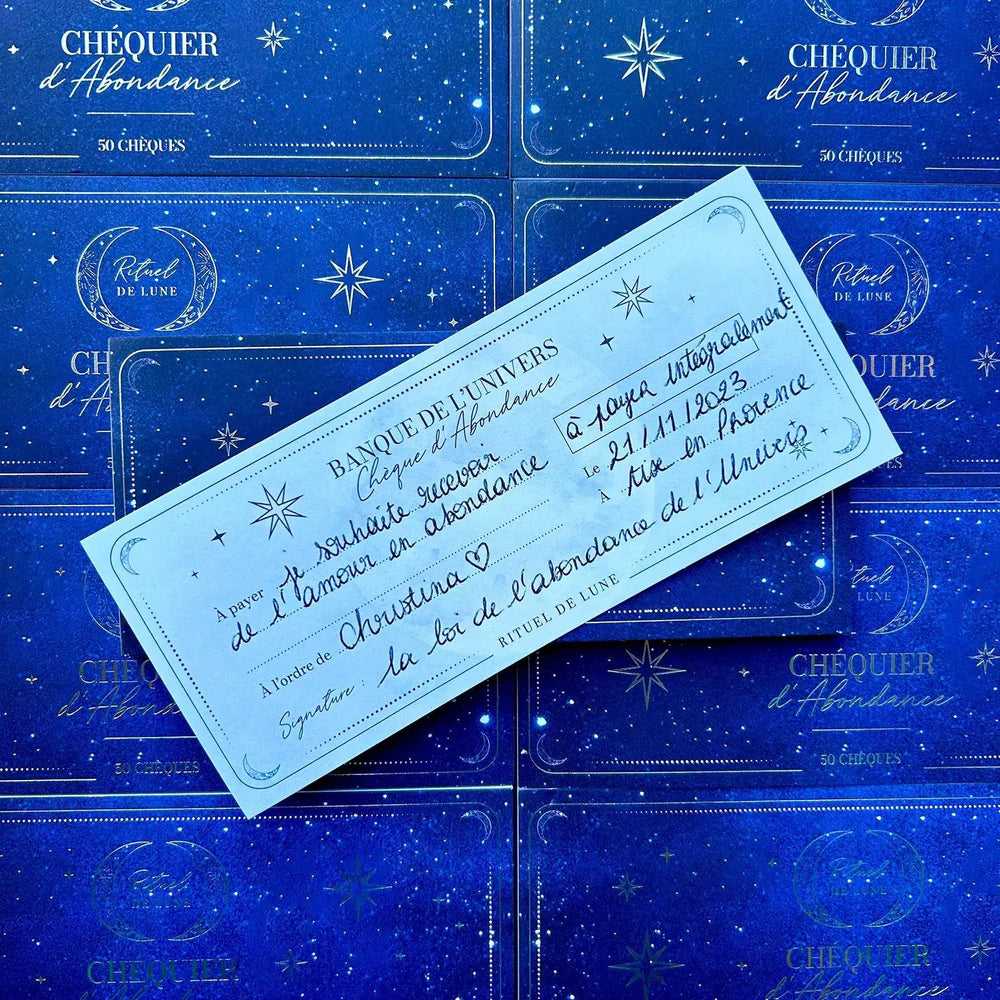 CHÉQUIER
d'Abondance
50 CHÈQUES
CHÉQUIER
d'Abondance
50 CHÈQUES
Rituel
DE LUNE
Rituel
DE LUNE
BANQUE DE L'UNIVERS
Chèque d'Abondance
À payer je souhaite recevoir
de l'amour en abondance
À l'ordre de Christina ♡
Signature : la loi de l'abondance de l'Univers
à payer intégralement
Le 21/11/2023
À Aix en Provence
RITUEL DE LUNE
CH
d'A
QUIER
dance
Rituel
LUNE
CHÉQUIER
d'Abonda
50 CHÈQUES
CHÉQUIER
d'Abondance
50 CHÈQUES
Rituel
DE LUNE
Rituel
DE LUNE
CHÉQUIER
d'Abondance
CHÉQUIER
d'Abondance